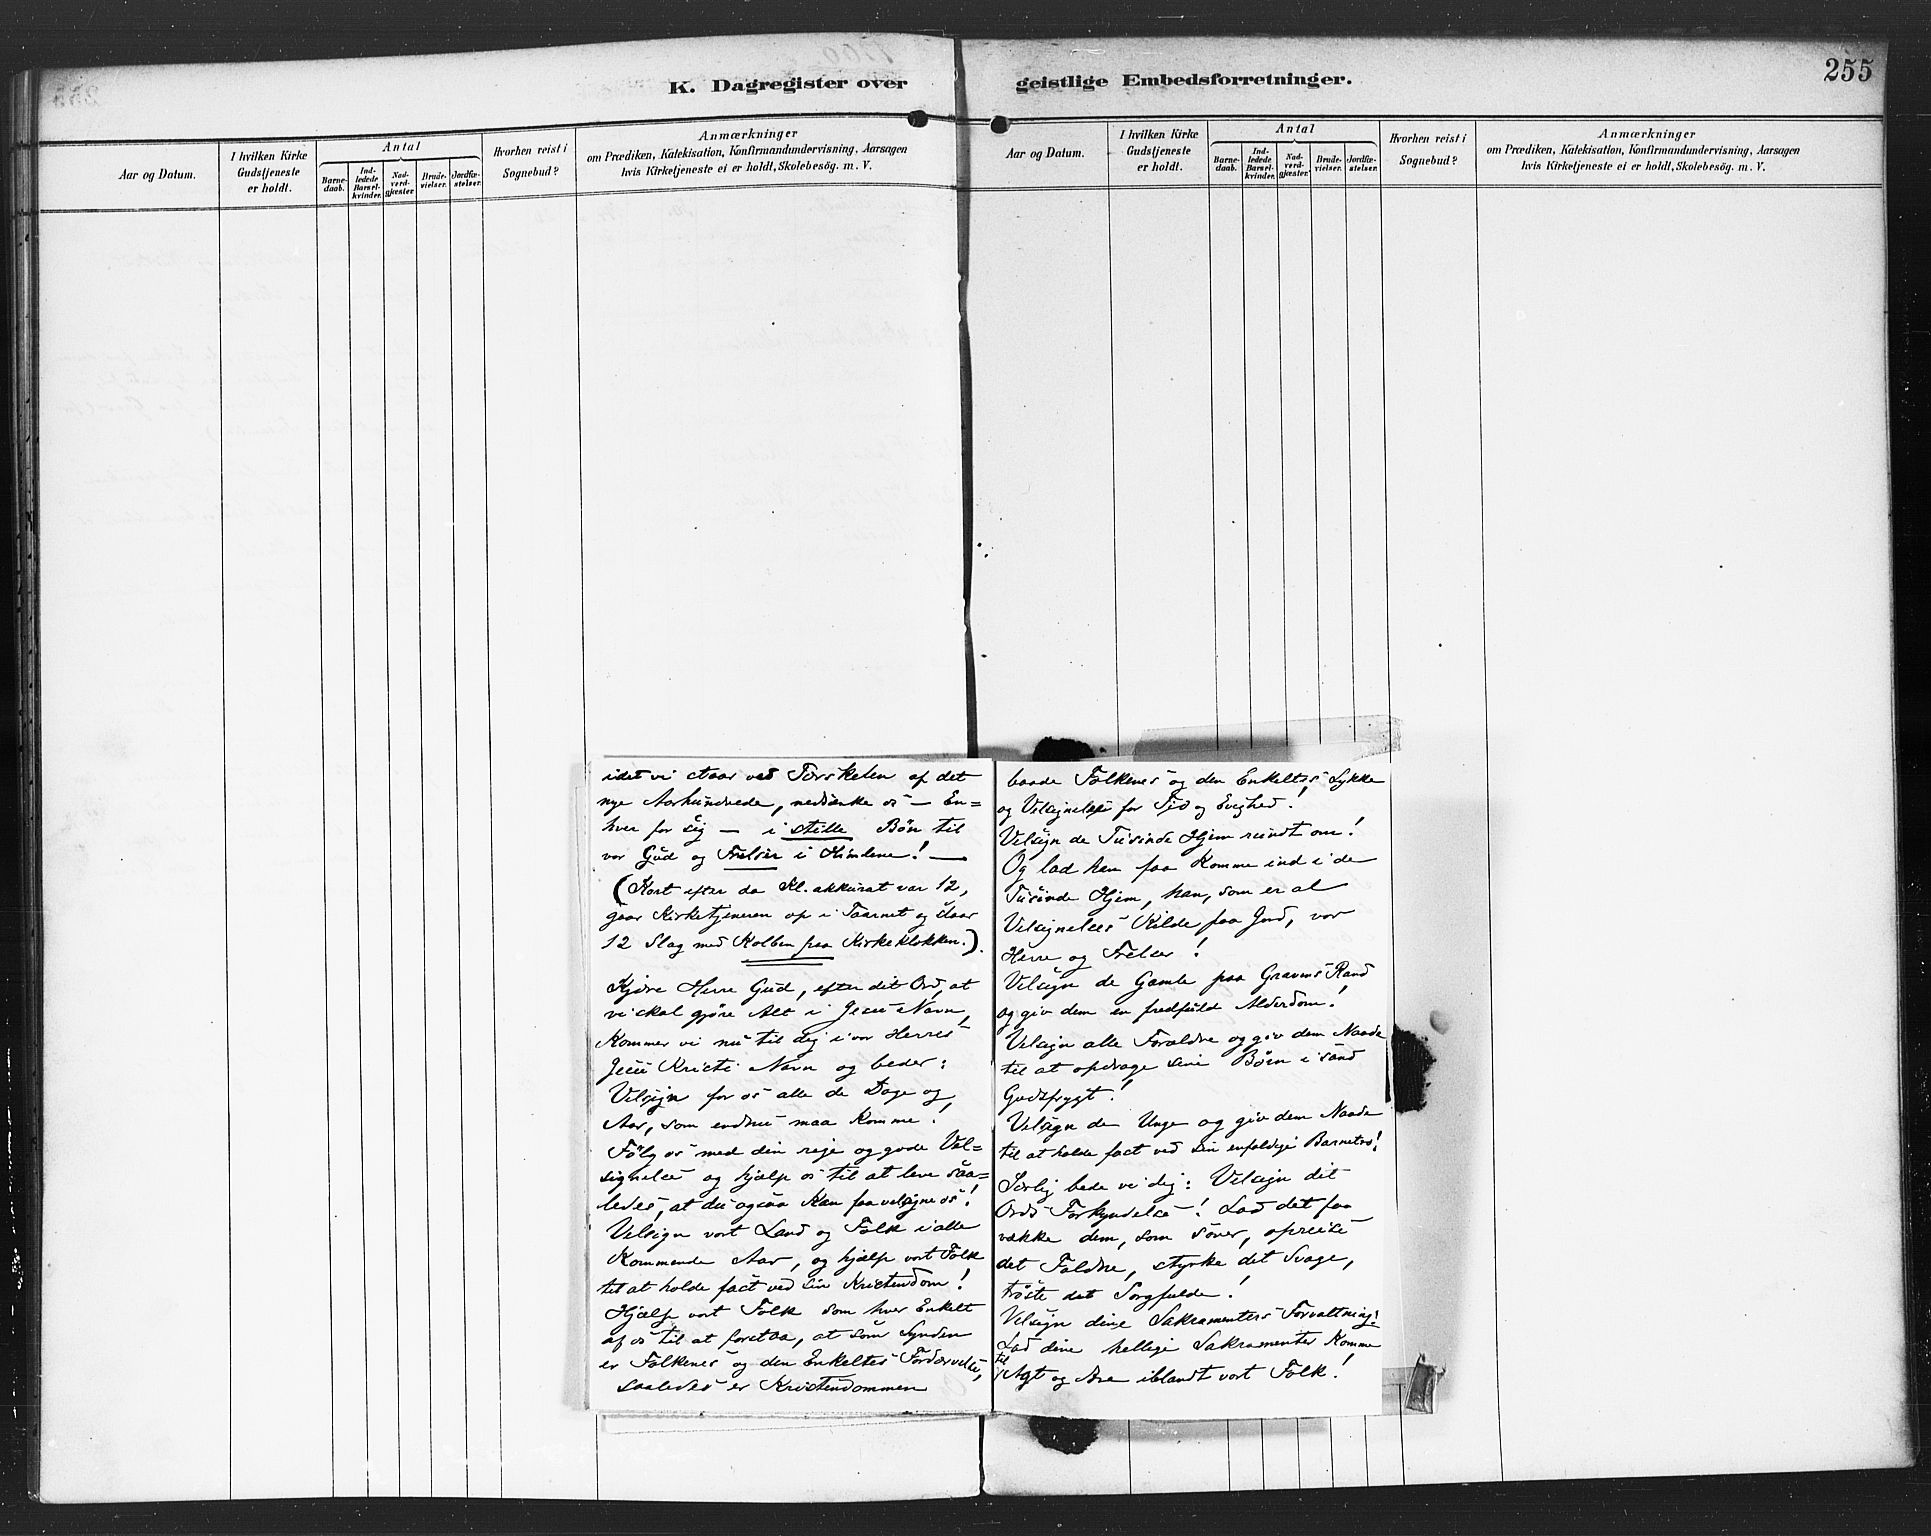 K. Dagregister over
Aar og Datum.
I hvilken Kirke
Gudstjeneste
er holdt.
Antal
Barne-
daab.
Ind-
ledede
Barsel-
kvinder.
Nad-
verd-
gjæster.
Brude-
vielser.
Jordfæ-
stelser.
Hvorhen reist i
Sognebud?
Anmærkninger
om Prædiken, Katekisation, Konfirmandundervisning, Aarsagen
hvis Kirketjeneste ei er holdt, Skolebesøg. m. V.
idet vi staar ved Tærskelen af det
nye Aarhundrede, nedsænke os — En=
hver for sig — i stille Bøn til
vor Gud og Frelser i Himlene! —
(Kort efter da Kl. akkurat var 12,
gaar Kirketjeneren op i Taarnet og slaar
12 Slag med Kolben paa Kirkeklokken.).
Kjære Herre Gud, efter dit Ord, at
vi skal gjøre Alt i Jesu Navn,
Kommer vi nu til dig i vor Herres
Jesu Kristi Navn og beder:
Velsign for os alle de Dage og
Aar, som endnu maa komme!
Følg os med din rige og gode Vel=
signelse og hjælp os til at leve saa=
ledes, at du ogsaa kan faa velsigne os!
Velsign vort Land og Folk i alle
Kommende Aar, og hjælp vort Folk
til at holde fast ved sin Kristendom!
Hjælp vort Folk som hver Enkelt
af os til at forstaa, at som Synden
er Folkenes og den Enkeltes Fordærvelse,
saaledes er Kristendommen
geistlige Embedsforretninger.
255
Aar og Datum.
I hvilken Kirke
Gudstjeneste
er holdt.
Antal
Barne-
daab.
Ind-
ledede
Barsel-
kvinder.
Nad-
verd-
gjæster.
Brude-
vielser.
Jordfæ-
stelser.
Hvorhen reist i
Sognebud?
Anmærkninger
om Prædiken, Katekisation, Konfirmandundervisning, Aarsagen
hvis Kirketjeneste ei er holdt, Skolebesøg. m. V.
baade Folkenes og den Enkeltes Lykke
og Velsignelse for Tid og Evighed!
Velsign de Tusinde Hjem rundt om!
Og lad ham faa Komme ind i de
Tusinde Hjem, han, som er al
Velsignelses Kilde, paa Jord, vor
Herre og Frelser!
Velsign de Gamle paa Gravens Rand
og giv dem en fredfuld Alderdom!
Velsign alle Forældre og giv dem Naade
til at opdrage sine Børn i sand
Gudsfrygt!
Velsign de Unge og giv dem Naade
til at holde fast ved sin enfoldige Barnetro!
Særlig bede vi dig: Velsign dit
Ords Forkyndelse! Lad det faa
vække dem, som sover, opreise
det Faldne, styrke det Svage,
trøste det Sorgfulde!
Velsign dine Sakramenters Forvaltning!
Lad dine hellige Sakramenter Komme
til
Agt og Ære iblandt vort Folk!